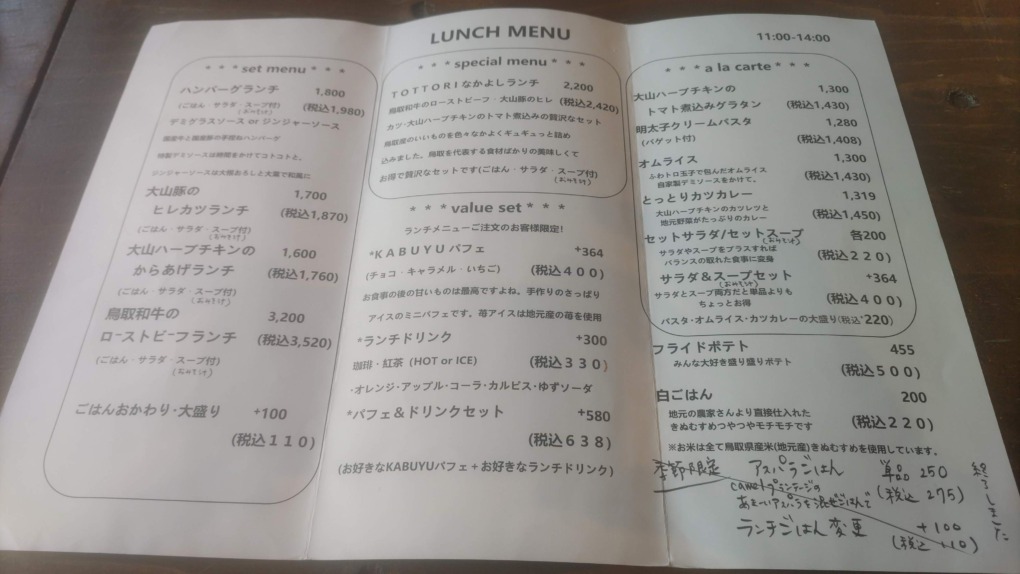 LUNCH MENU
11:00-14:00
***set menu***
ハンバーグランチ 1,800
(ごはん・サラダ・スープ付) (税込1,980)
(おみそ汁)
デミグラスソース or ジンジャーソース
国産牛と国産豚の手捏ねハンバーグ
特製デミソースは時間をかけてコトコトと。
ジンジャーソースは大根おろしと大葉で和風に
大山豚の 1,700
ヒレカツランチ (税込1,870)
(ごはん・サラダ・スープ付)
(おみそ汁)
大山ハーブチキンの 1,600
からあげランチ (税込1,760)
(ごはん・サラダ・スープ付)
(おみそ汁)
鳥取和牛の 3,200
ローストビーフランチ (税込3,520)
(ごはん・サラダ・スープ付)
(おみそ汁)
ごはんおかわり・大盛り +100
(税込１１０)
***special menu***
TOTTORIなかよしランチ 2,200
鳥取和牛のローストビーフ・大山豚のヒレ (税込2,420)
カツ・大山ハーブチキンのトマト煮込みの贅沢なセット
鳥取産のいいものを色々なかよくギュギュっと詰め
込みました。鳥取を代表する食材ばかりの美味しくて
お得で贅沢なセットです(ごはん・サラダ・スープ付)
(おみそ汁)
***value set***
ランチメニューご注文のお客様限定!
*KABUYUパフェ +364
(チョコ・キャラメル・いちご) (税込４００)
お食事の後の甘いものは最高ですよね。手作りのさっぱり
アイスのミニパフェです。苺アイスは地元産の苺を使用
*ランチドリンク +300
珈琲・紅茶 (HOT or ICE) (税込３３０)
・オレンジ・アップル・コーラ・カルピス・ゆずソーダ
*パフェ＆ドリンクセット +580
(税込６３８)
(お好きなKABUYUパフェ＋お好きなランチドリンク)
***a la carte***
大山ハーブチキンの 1,300
トマト煮込みグラタン (税込1,430)
明太子クリームパスタ 1,280
(バゲット付) (税込1,408)
オムライス 1,300
ふわトロ玉子で包んだオムライス (税込1,430)
自家製デミソースをかけて。
とっとりカツカレー 1,319
大山ハーブチキンのカツレツと (税込1,450)
地元野菜がたっぷりのカレー
セットサラダ/セットスープ 各200
(おみそ汁)
サラダやスープをプラスすれば (税込２２０)
バランスの取れた食事に変身
サラダ＆スープセット +364
(おみそ汁)
サラダとスープ両方だと単品よりも (税込４００)
ちょっとお得
パスタ・オムライス・カツカレーの大盛り(税込+220)
フライドポテト 455
みんな大好き盛り盛りポテト (税込５００)
白ごはん 200
地元の農家さんより直接仕入れた (税込２２０)
きぬむすめつやつやモチモチです
※お米は全て鳥取県産米(地元産)きぬむすめを使用しています。
季節限定 アスパラごはん 単品 250
camelプランテージの (税込 275)
あま〜いアスパラを混ぜごはんで
ランチごはん変更 +100
(税込 +110)
終了しました